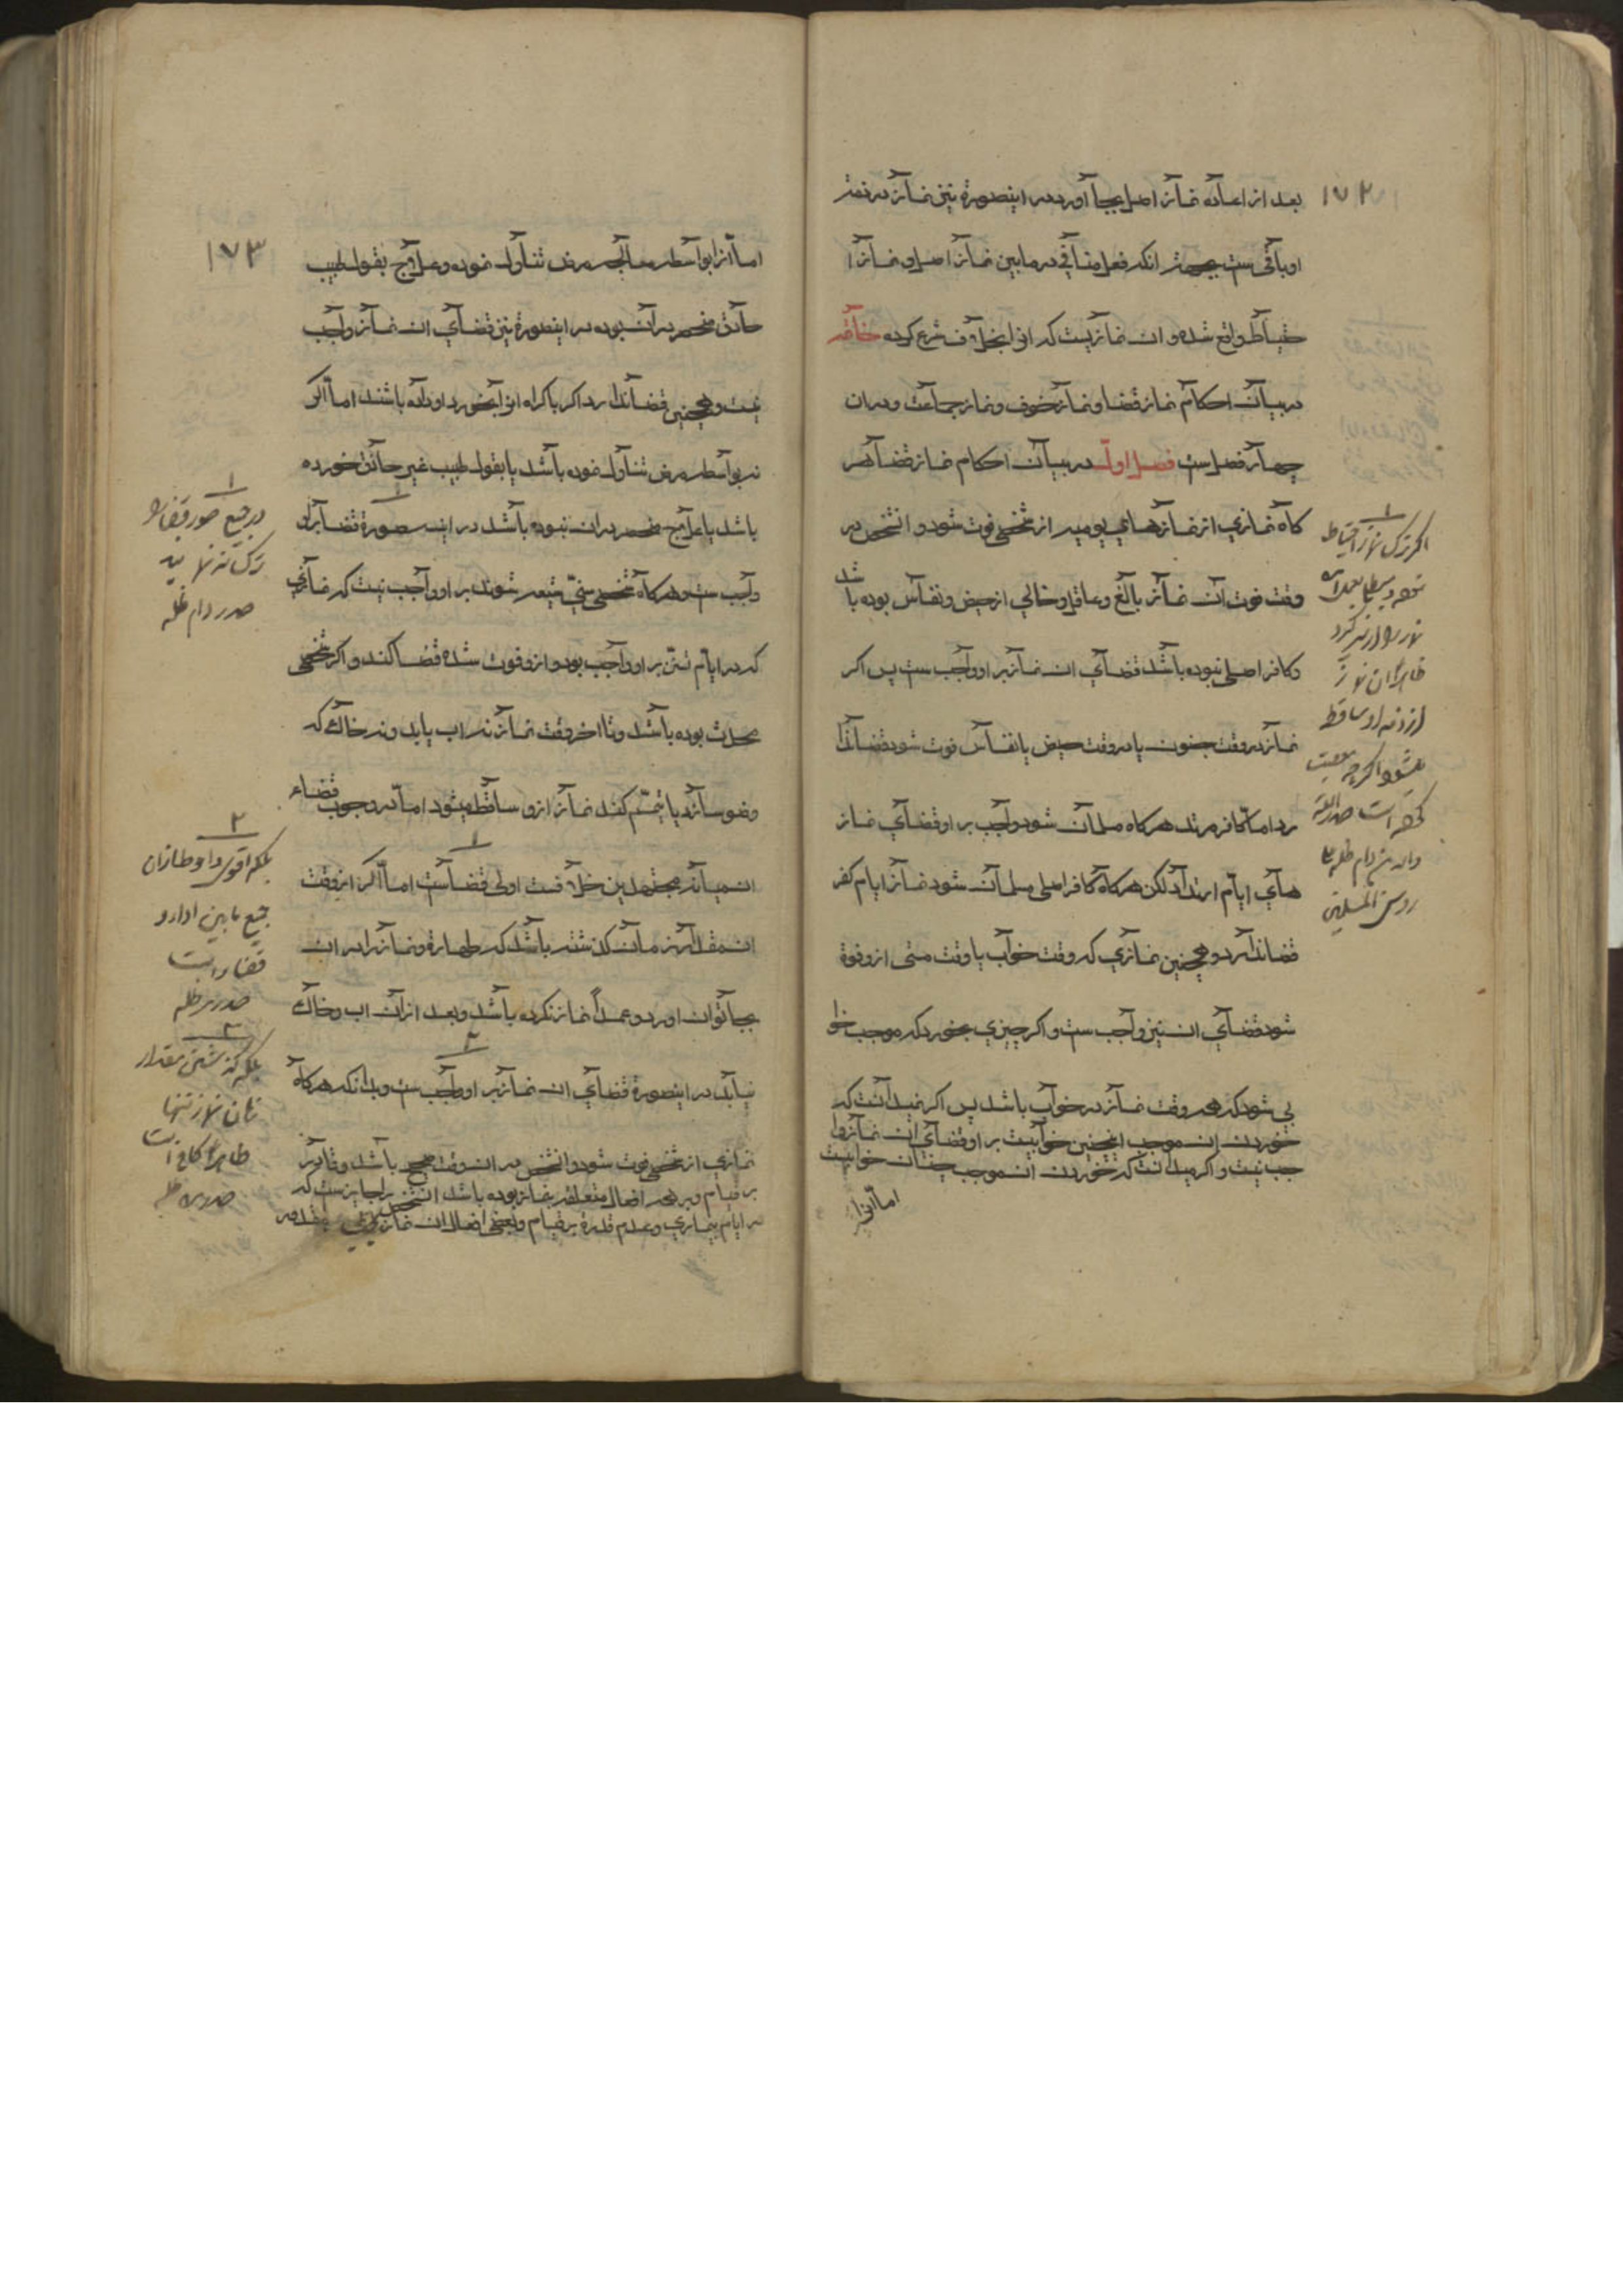 ۱۷۲
بعد از اعاده نماز اصل بجا آورد در اینصورة نیز نماز در ذمهٔ
او باقی ست بجهة انکه فعل منافی در ما بین نماز اصل و نماز ا
حتیاط واقع شده و ان نمازیست که انرا بخلاف شرع کرده خاتمه
در بیان احکام نماز قضا و نماز خوف و نماز جماعت و در ان
چهار فصل ست فصل اول در بیان احکام نماز قضا هر
کاه نمازی از نمازهای یومیه از شخصی فوت شود و انشخص در
وقت فوت آن نماز بالغ و عاقل و خالی از حیض و نفاس بوده باشد
و کافر اصلی نبوده باشد قضای ان نماز بر او واجب ست پس اکر
نماز در وقت جنون یا در وقت حیض یا نفاس فوت شود قضا ندا
رد اما کافر مرتد هرکاه مسلمان شود واجب بر او قضای نماز
های ایام ارتداد لکن هرکاه کافر اصلی مسلمان شود نماز ایام کفر
قضا ندارد و همچنین نمازی که وقت خواب یا وقت مستی ازو فوة
شود قضای ان نیز واجب ست و اکر چیزی بخورد که موجب خوا
بی شود که همه وقت نماز در خواب باشد پس اکر نمیدانست که
خوردن ان موجب اینچنین خوابیست بر او قضای ان نماز وا
جب نیست و اکر میدانست که خوردن ان موجب چنان خوابیست
اما انرا
۱
اکر ترک نماز احتیاط
نماز را از سر کرد
ظاهرا ان نماز
از ذمه او ساقط
میشود اکرچه معصیت
کرده است صدر الملة
والدین دام ظله علی
رؤس المسلمین
۱۷۳
اما انرا بواسطه معالجه مرض تناول نموده و علاج بقول طبیب
حاذق منحصر در آن بوده در اینصورة نیز قضای ان نماز واجب
نیست و همچنین قضا ندارد اکر باکراه انرا بخورد او داده باشند اما اکر
نه بواسطه مرض تناول نموده باشد یا بقول طبیب غیر حاذق خورده
باشد یا علاج منحصر در ان نبوده باشد در این صورة قضا بر او
واجب ست و هرکاه شخصی سنّی شیعه شود بر او واجب نیست که نمازی
که در ایام تسنن بر او واجب بود و ازو فوت شده قضا کند و اکر شخصی
محدث بوده باشد و تا اخر وقت نماز نه اب یابد و نه خاک که
وضو سازد یا تیمّم کند نماز ازو ساقط میشود اما در وجوب قضاء
ان میانه مجتهدین خلافست اولی قضاست اما اکر از وقت
ان مقدار زمان کذشته باشد که طهارة و نماز را در ان
بجا توان اورد و عمداً نماز نکرده باشد و بعد از ان اب و خاک
نیابد در اینصورة قضای ان نماز بر او واجب ست و بدانکه هرکاه
نمازی از شخصی فوت شود و انشخص در ان وقت صحیح باشد و قادر
بر قیام و بر همه افعال متعلقه بنماز بوده باشد انشخص را جایز ست که
در ایام بیماری و عدم قدرة بر قیام و بعضی افعال ان نماز
۱
در جمیع صور قضا را
ترک ننماید
صدر دام ظله
۲
بلکه اقوی و احوط از ان
جمع ما بین ادا و
قضاست
صدر مد ظله
۳
بلکه کذشتن مقدار
زمان نماز تنها
ظاهرا کافی است
صدر مد ظله